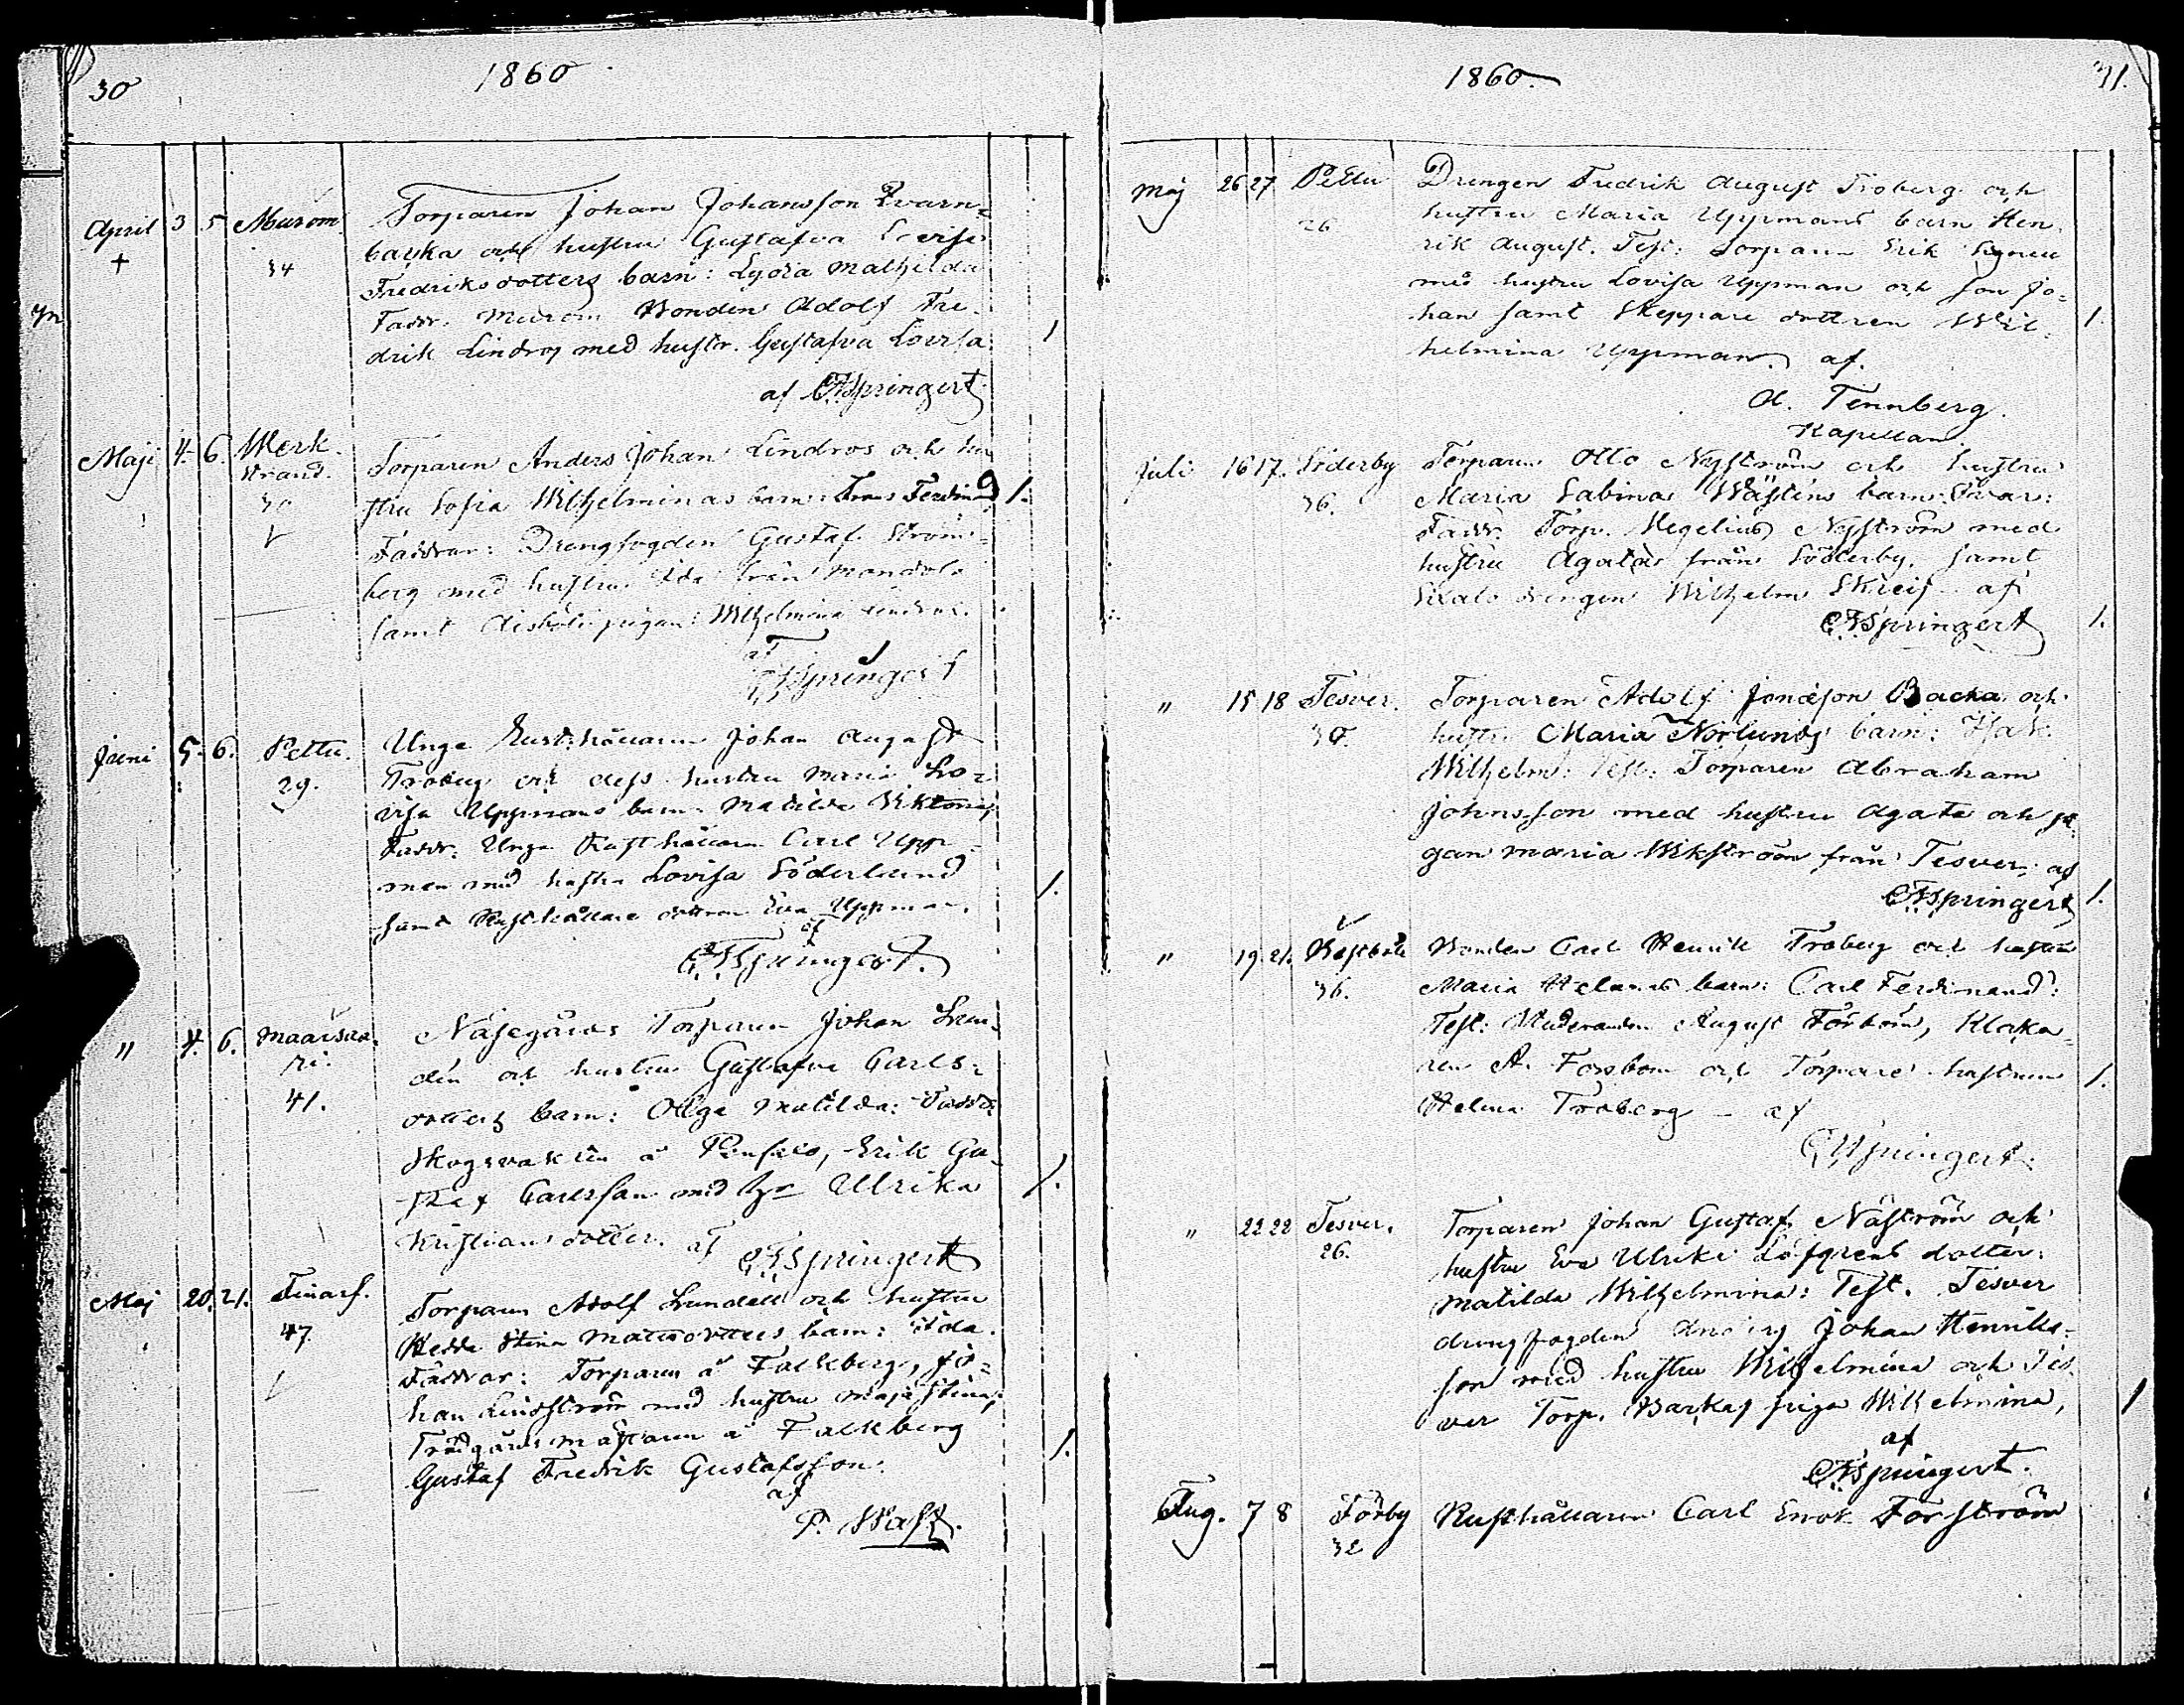 30
1860
April 3 5 Murom
+ 34
Torparen Johan Johansson Qvarn-
backa och hustru Gustafva Lovisa
Fredriksdotters barn: Lydia Mathilda
Faddr. Murom Bonden Adolf Fre-
drik Lindros med hustr. Gustafva Lovisa 1
af Springert
Maji 4. 6. Werk
strand.
Torparen Anders Johan Lindros och hu
stru Sofia Wilhelminas barn: Frans Ferdinand 1.
Faddrar: Drengfogden Gustaf Ström-
berg med hustru Ida från
samt pigan Wilhelmina
af
Springert
Juni 5. 6. Pettu.
29.
Unga Rusthållaren Johan August
Froberg och dess hustru Maria Lo-
visa Uppmans barn: Matilda Viktoria,
Faddr: Unga Rusthållaren Carl Upp-
man med hustru Lovisa Söderlund 1.
samt Rusthållare dottren Eva Uppman.
af
Springert.
" 4. 6.
41.
Näsegårds Torparen Johan Lin-
dén och hustru Gustafva Carls-
dotters barn: Olga Matilda: Faddr:
Skogsvakten å Erik Gu-
staf Carlsson med hr Ulrika 1.
Kristians dotter. af Springert
Maj 20. 21. Finarf.
47.
Torparen Adolf Lundell och hustru
Hedda Stina Mattsdotters barn: Ida.
Faddrar: Torparen å Falkberg, Jo-
han Lindström med hustru Maja Stina,
Trädgårdsmästaren å Falkberg 1.
Gustaf Fredrik Gustafsson.
af
P. Wast.
1860.
31.
Maj 26 27 Pettu
26
Drengen Fredrik August Froberg och
hustru Maria Uppmans barn Hen-
rik August. Test: Torparen Erik
med hustru Lovisa Uppman och son Jo-
han samt Skeppare dottren Wil- 1.
helmina Uppman. af.
A. Tennberg.
Kapellan.
Juli 16 17. Söderby
36.
Torparen Otto Nyström och hustru
Maria Sabina Wästéns barn:
Faddr. Torp. Nyström med
hustru Agata från Söderby, samt
drengen Wilhelm af
Springert 1.
" 15 18 Tesver.
30.
Torparen Adolf Jonasson Backa och
hustr. Maria Norlunds barn: Isak
Wilhelm: Test: Torparen Abraham
Johnsson med hustru Agata och pi-
gan Maria Wikström från Tesver, af
Springert 1.
" 19. 21.
36.
Bonden Carl Henrik Froberg och hustru
Maria Helenas barn: Carl Ferdinand:
Test: August Forsbom, Klocka-
ren A. Forsbom och Torpare hustrun 1.
Helena Froberg - af
Springert.
" 22 22 Tesver.
26.
Torparen Johan Gustaf Näström och
hustru Eva Ulrika Löfgrens dotter:
Matilda Wilhelmina: Test. Tesver
drengfogden Anders Johan Henriks-
son med hustru Wilhelmina och Tes-
ver Torp. Backas piga Wilhelmina, 1
af
Springert.
Aug. 7 8 Förby
32
Rusthållaren Carl Enok Forström